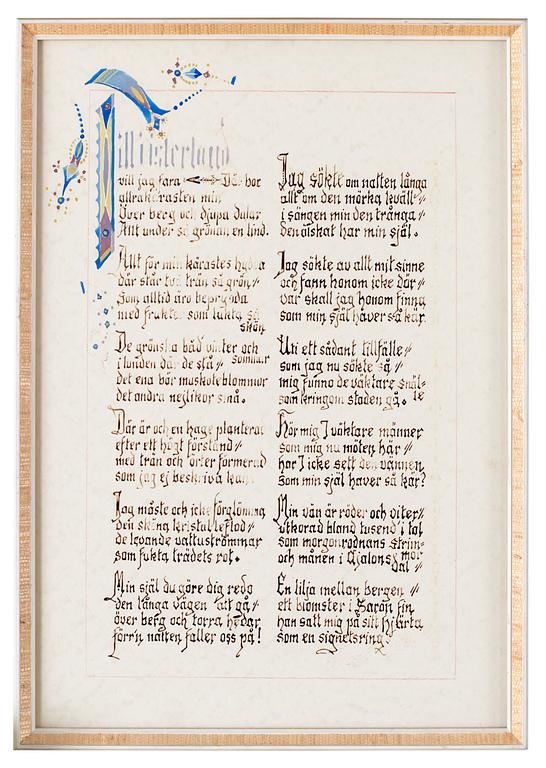 Till österland
vill jag fara Där bor
allrakärasten min
Över berg och djupa dalar
Allt under så grönan en lind.
Allt för min kärastes hydda
där står två trän så grön
Som alltid äro beprydda
med frukter som lukta så
skön
De grönska båd vinter och
sommar
i lunden där de stå
det ena bär muskoteblommor
det andra nejlikor små.
Där är och en hage planterat
efter ett högt förstånd
med trän och örter formerad
som jag ej beskriva kan.
Jag måste och icke förglömma
den sköna kristalleflod
de levande vattuströmmar
som fukta trädets rot.
Min själ du göre dig redo
den långa vägen att gå
över berg och torra hedar
förr'n natten faller oss på!
Jag sökte om natten långa
allt om den mörka kväll
i sängen min den trånga
den älskat har min själ.
Jag sökte av allt mit sinne
och fann honom icke där
var skall jag honom finna
som min själ håver så kär.
Uti ett sådant tillfälle
som jag nu sökte så
mig funno de väktare snäl-
le
som kringom staden gå.
Hör mig I väktare männer
som mig nu möten här
har I icke sett den vännen
Som min själ haver så kär?
Min vän är röder och viter
utkorad bland tusend' i tal
som morgonrodnans strim-
mor
och månen i Ajalons dal
En lilja mellan bergen
ett blomster i Saron fin
han satt mig på sitt hjärta
som en signetsring.